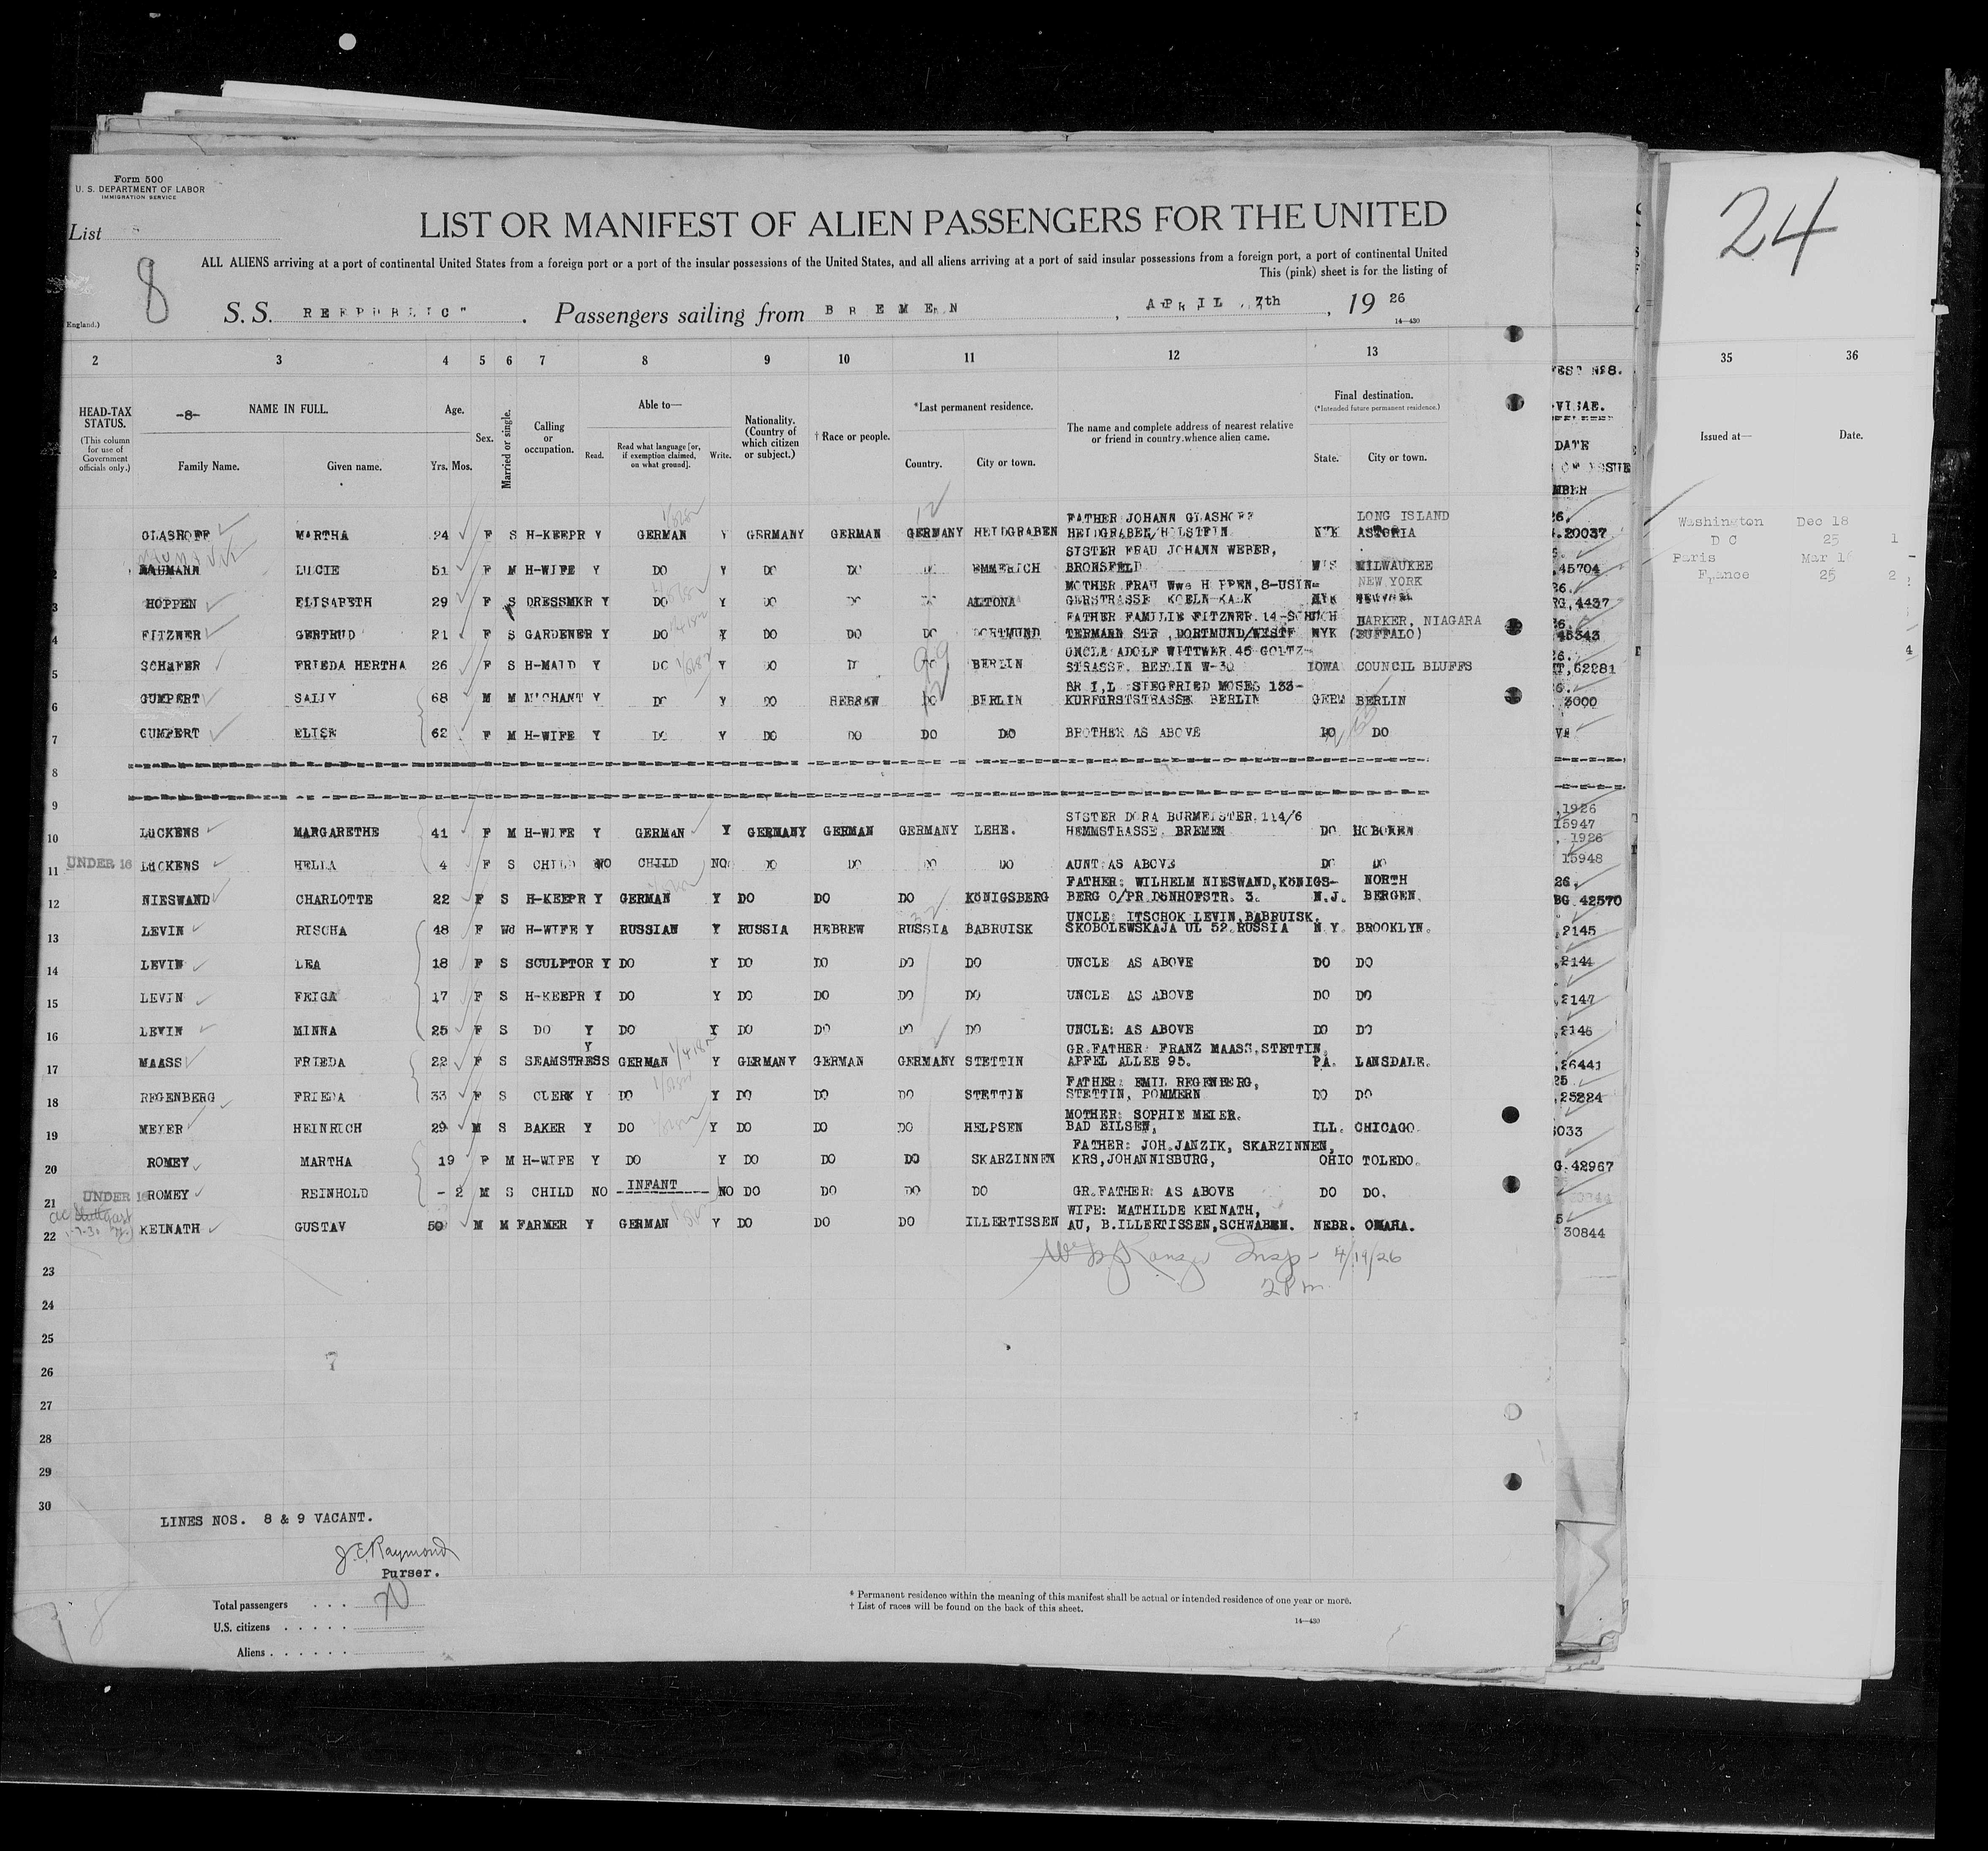 Form 500
U. S. DEPARTMENT OF LABOR
IMMIGRATION SERVICE
24
LIST OR MANIFEST OF ALIEN PASSENGERS FOR THE UNITED
List
8
ALL ALIENS arriving at a port of continental United States from a foreign port or a port of the insular possessions of the United States, and all aliens arriving at a port of said insular possessions from a foreign port, a port of continental United
This (pink) sheet is for the listing of
England.)
S. S. REEPUBLIC" . Passengers sailing from BREMEN , APRIL 7th , 19 26
14—430
2 3 4 5 6 7 8 9 10 11 12 13 35 36
HEAD-TAX STATUS. (This column for use of Government officials only.)
-8- NAME IN FULL.
Family Name. Given name.
Age. Yrs. Mos.
Sex.
Married or single.
Calling or occupation.
Able to—
Read. Read what language [or, if exemption claimed, on what ground]. Write.
Nationality. (Country of which citizen or subject.)
† Race or people.
*Last permanent residence.
Country. City or town.
The name and complete address of nearest relative or friend in country whence alien came.
Final destination.
(*Intended future permanent residence.)
State. City or town.
VISAE.
DATE
Issued at— Date.
Washington Dec 18
D C 25 1
Paris Mar
France 25 2
FATHER JOHANN GLASHOFF LONG ISLAND
GLASHOFF MARTHA 24 F S H-KEEPR Y GERMAN Y GERMANY GERMAN GERMANY HEIDGRABEN HEIDGRABEN/HOLSTEIN NYK ASTORIA 20037
SISTER FRAU JOHANN WEBER,
2 BAUMANN LUCIE 51 F M H-WIFE Y DO Y DO DO DO EMMERICH BRONSFELD WIS MILWAUKEE 45704
MOTHER FRAU Wwe HOPPEN, 8-USIN= NEW YORK
3 HOPPEN ELISABETH 29 F S DRESSMKR Y DO Y DO DO DO ALTONA GERSTRASSE KOELN KALK NYK 4437
FATHER FAMILIE FITZNER 14-SCHUCH BARKER, NIAGARA
4 FITZNER GERTRUD 21 F S GARDENER Y DO Y DO DO DO DORTMUND TERMANN STR , DORTMUND/WESTF NYK (BUFFALO) 45343
UNCLE ADOLF WITTWER 45 GOLTZ-
5 SCHäFER FRIEDA HERTHA 26 F S H-MAID Y DO Y DO DO DO BERLIN STRASSE, BERLIN W-30 IOWA COUNCIL BLUFFS 62281
BR I,L SIEGFRIED MOSES 133-
6 GUMPERT SALLY 68 M M M'CHANT Y DO Y DO HEBREW DO BERLIN KURFURSTSTRASSE BERLIN GERM BERLIN 3000
7 GUMPERT ELISE 62 F M H-WIFE Y DO Y DO DO DO DO BROTHER AS ABOVE DO DO
8
9
SISTER DORA BURMEISTER 114/6 1926
10 LüCKENS MARGARETHE 41 F M H-WIFE Y GERMAN Y GERMANY GERMAN GERMANY LEHE. HEMMSTRASSE, BREMEN DO HOBOKEN 15947
1926
11 UNDER 16 LüCKENS HELLA 4 F S CHILD NO CHILD NO DO DO DO DO AUNT AS ABOVE DO DO 15948
FATHER: WILHELM NIESWAND, KöNIGS- NORTH
12 NIESWAND CHARLOTTE 22 F S H-KEEPR Y GERMAN Y DO DO DO KöNIGSBERG BERG O/PR.DöNHOFSTR. 3. N.J. BERGEN. BG 42570
UNCLE: ITSCHOK LEVIN, BABRUISK.
13 LEVIN RISCHA 48 F Wd H-WIFE Y RUSSIAN Y RUSSIA HEBREW RUSSIA BABRUISK SKOBOLEWSKAJA UL 52. RUSSIA N.Y. BROOKLYN. 2145
14 LEVIN LEA 18 F S SCULPTOR Y DO Y DO DO DO DO UNCLE AS ABOVE DO DO 2144
15 LEVIN FRIGA 17 F S H-KEEPR Y DO Y DO DO DO DO UNCLE AS ABOVE DO DO 2147
16 LEVIN MINNA 25 F S DO Y DO Y DO DO DO DO UNCLE: AS ABOVE DO DO 2146
Y GR.FATHER FRANZ MAASS, STETTIN,
17 MAASS FRIEDA 22 F S SEAMSTRESS GERMAN Y GERMANY GERMAN GERMANY STETTIN APFEL ALLEE 95. PA. LANSDALE. 26441
FATHER: EMIL REGENBERG,
18 REGENBERG FRIEDA 33 F S CLERK Y DO Y DO DO DO STETTIN STETTIN, POMMERN DO DO 25224
MOTHER: SOPHIE MEIER.
19 MEYER HEINRICH 29 M S BAKER Y DO Y DO DO DO HELPSEN BAD EILSEN, ILL. CHICAGO. 6033
FATHER: JOH.JANZIK, SKARZINNEN,
20 ROMEY MARTHA 19 F M H-WIFE Y DO Y DO DO DO SKARZINNEN KRS,JOHANNISBURG, OHIO TOLEDO. G.42967
21 UNDER 16 ROMEY REINHOLD - 2 M S CHILD NO INFANT NO DO DO DO DO GR.FATHER: AS ABOVE DO DO.
WIFE: MATHILDE KEINATH,
22 KEINATH GUSTAV 50 M M FARMER Y GERMAN Y DO DO DO ILLERTISSEN AU, B.ILLERTISSEN,SCHWABEN. NEBR. OMAHA. 30844
Insp- 4/19/26
2 Pm
23
24
25
26
27
28
29
30
LINES NOS. 8 & 9 VACANT.
J. E. Raymond
Purser.
Total passengers . . . 20
U.S. citizens . . . . .
Aliens . . . . . .
* Permanent residence within the meaning of this manifest shall be actual or intended residence of one year or more.
† List of races will be found on the back of this sheet.
14—430